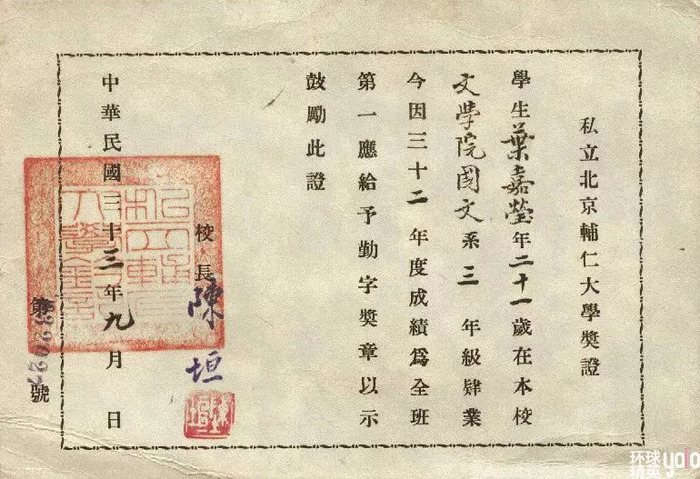 私立北京輔仁大學獎證
學生葉嘉瑩年二十一歲在本校
文學院國文系三年級肄業
今因三十二年度成績爲全班
第一應給予勤字獎章以示
鼓勵此證
校長陳垣
中華民國三十三年九月日
第 號
环球
精英
yolo